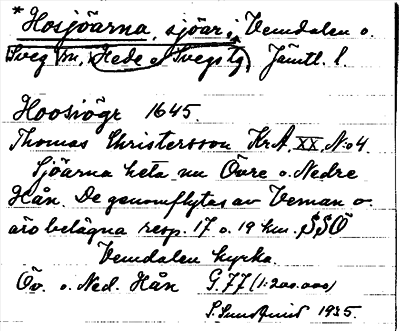 * Hosjöarna, sjöar i Vemdalen o.
Sveg sn, Hede o Svegs tg, Jämtl. l.
Hoosiögr 1645.
Thomas Christersson KrA, XX, N:o 4.
Sjöarna heta nu Övre o. Nedre
Hån. De genomflytas av Veman o.
äro belägna resp. 17 o. 19 km. SSÖ
Vemdalen kyrka.
Öv. o. Ned. Hån G. 77 (1:200.000)
S. Sundqvist 1935.